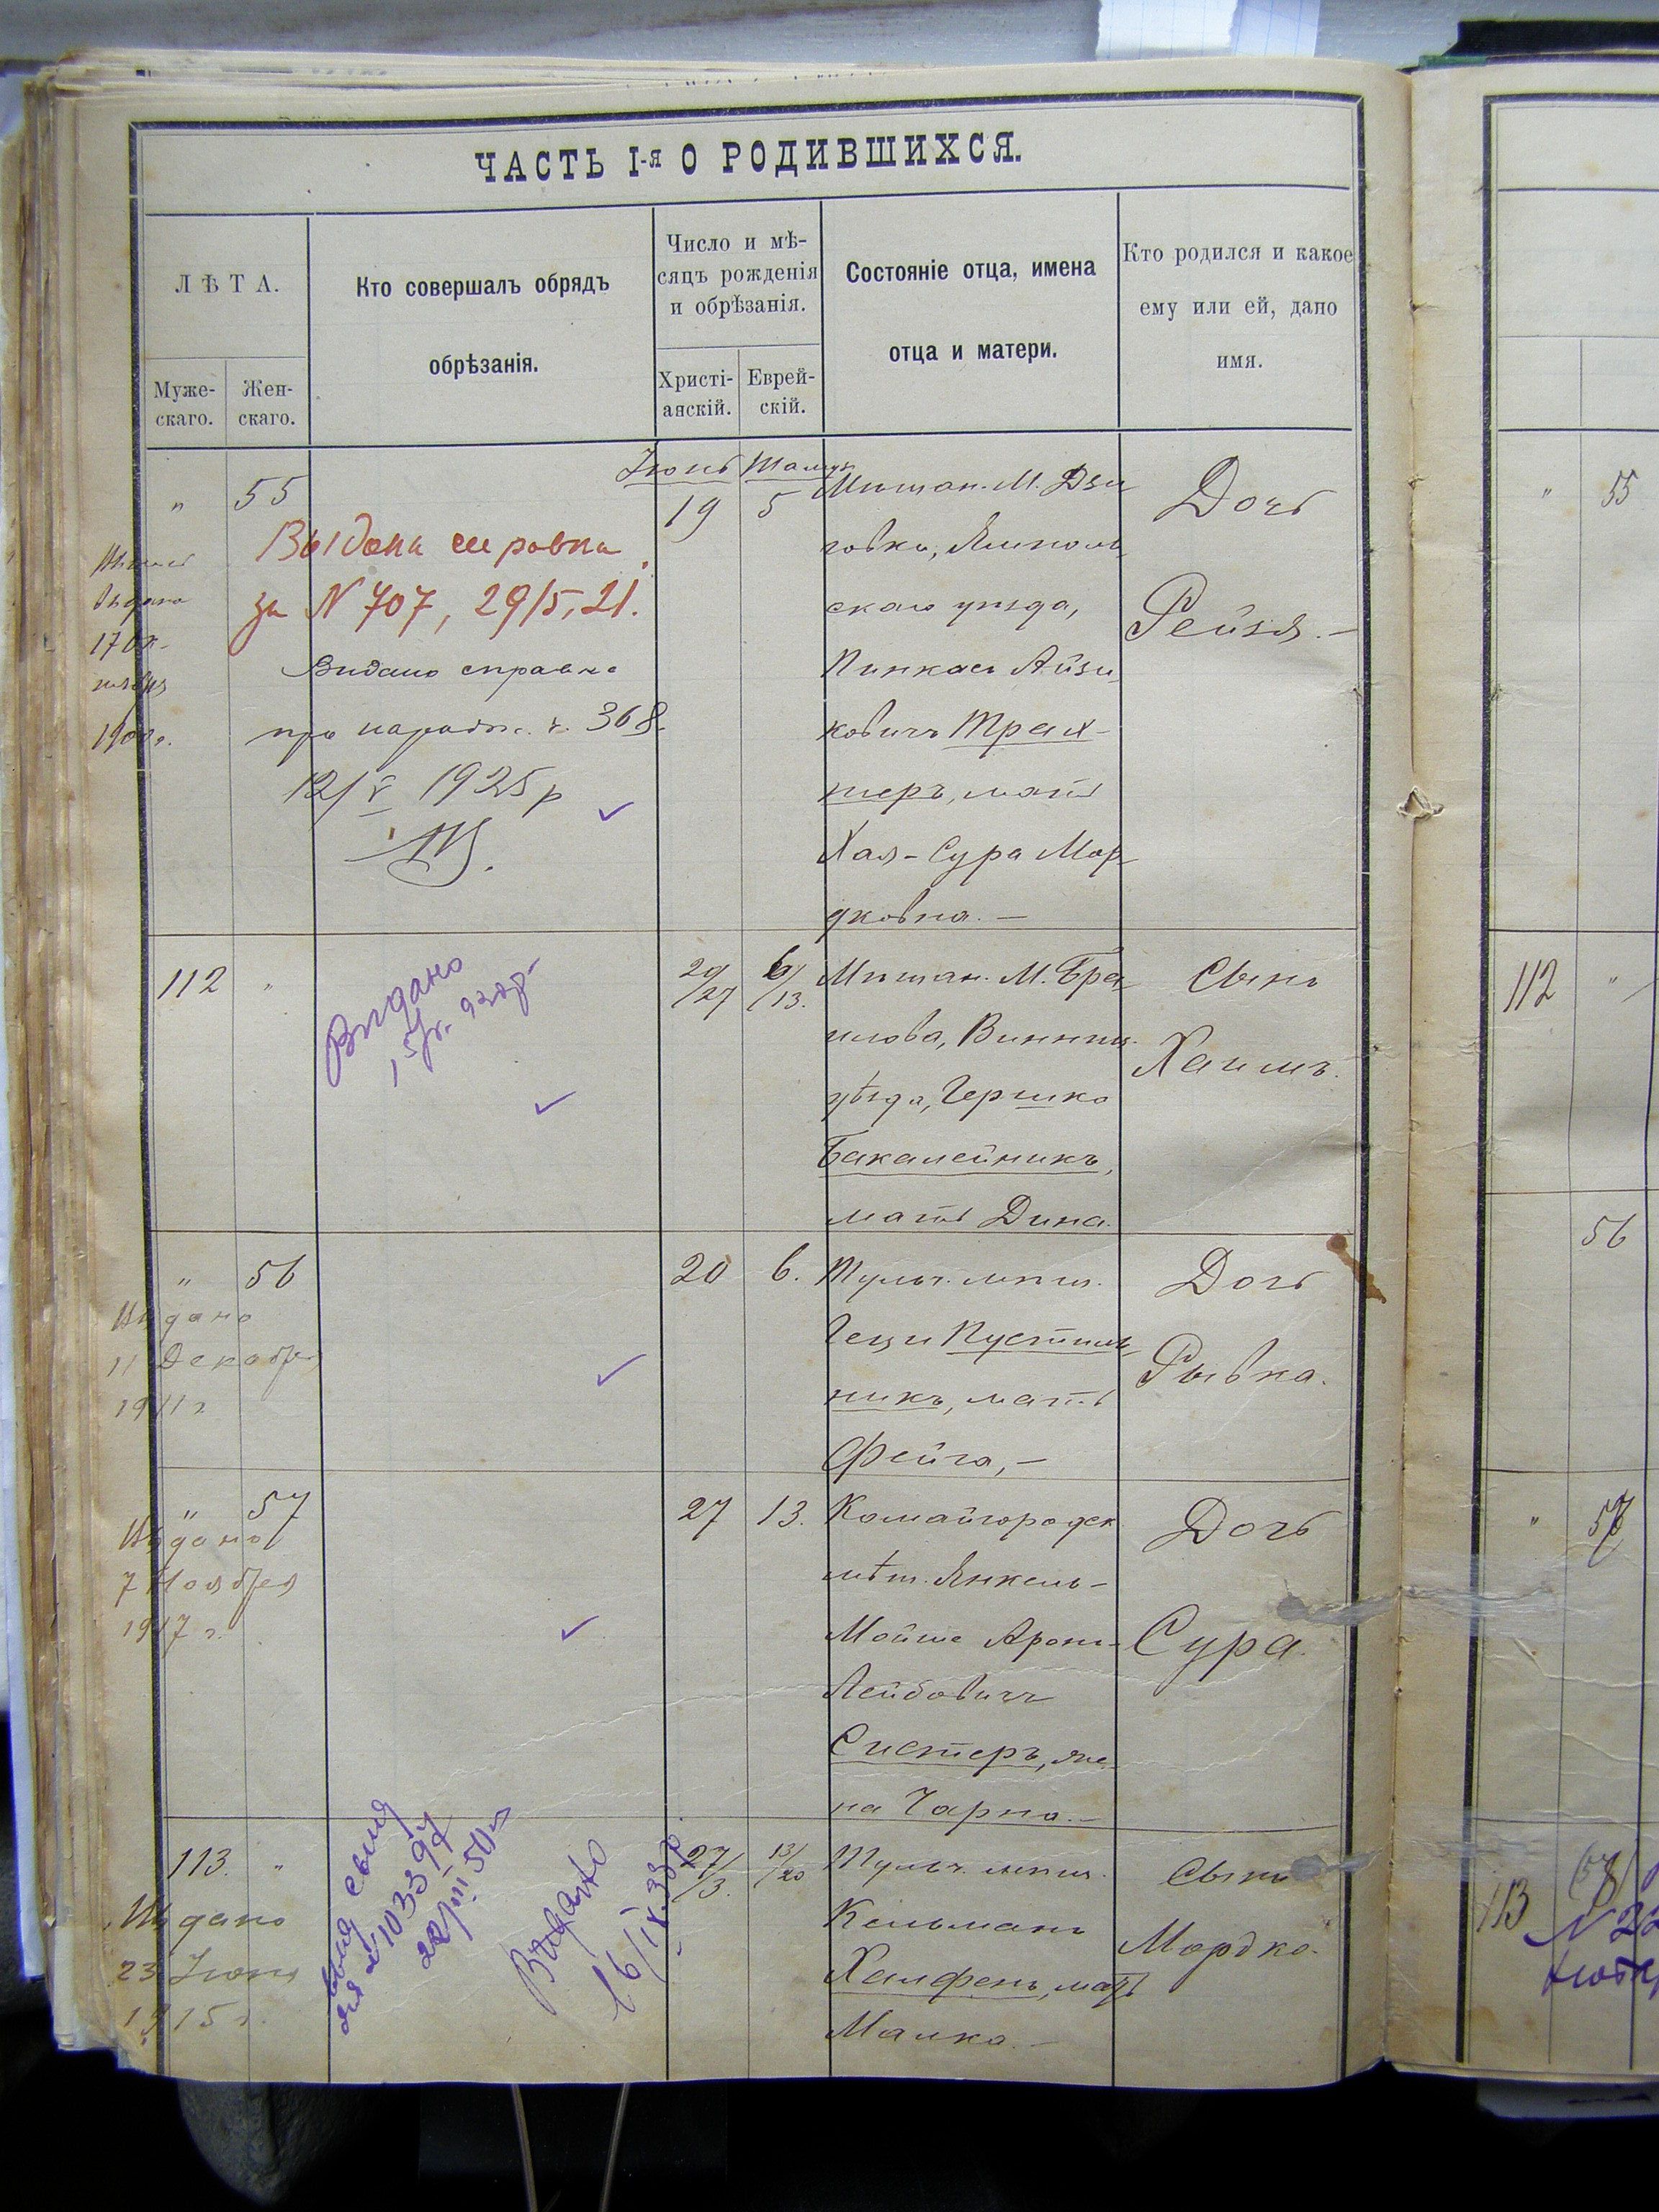 ЧАСТЬ I-я О РОДИВШИХСЯ.
ЛѢТА.
Муже-
скаго.
Жен-
скаго.
Кто совершалъ обрядъ
обрѣзанія.
Число и мѣ-
сяцъ рожденія
и обрѣзанія.
Христі-
анскій.
Еврей-
скій.
Состояніе отца, имена
отца и матери.
Кто родился и какое
ему или ей, дано
имя.
" 55
Выдана справка
за N 707, 29/5, 21.
Видано справка
про народж. ч. 368.
12/V 1925 р
Выдано
Іюнь
19 5
Мѣщан. М. Дзи
говки, Ямполь
скаго уѣзда,
Пинхасъ Айзи
ковичъ Трах-
теръ, мать
Хая-Сура Мор
дковна. —
Дочь
Рейзя. —
" 55
112 "
Видано
29/27 6/13.
Мѣщан. М. Бра
илова, Винниц.
уѣзда, Гершко
Бакалейникъ,
мать Дина.
Сынъ
Хаимъ.
112 "
" 56
Выдано
11 Декабря
1911 г
20 6.
Тульч. мѣщ.
Гецъ Пустиль
никъ, мать
Фейга, —
Дочь
Рывка.
56
" 57
Выдано
7 Ноября
1917 г.
27 13.
Комайгородск
мѣщ. Янкель-
Мойше Аронъ-
Лейбовичъ
Систеръ, же
на Чарна. —
Дочь
Сура.
" 57
113. "
Выдано
23 Іюня
1915 г.
Видано
16/IX 38 р.
27/3. 13/20
Тульч. мѣщ.
Кельманъ
Халфенъ, мать
Малка. —
Сынъ
Мордко.
113